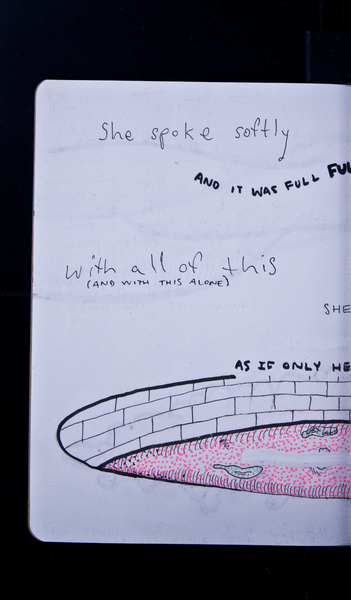 She spoke softly
AND IT WAS FULL FUL
with all of this
(AND WITH THIS ALONE)
SHE
AS IF ONLY HE